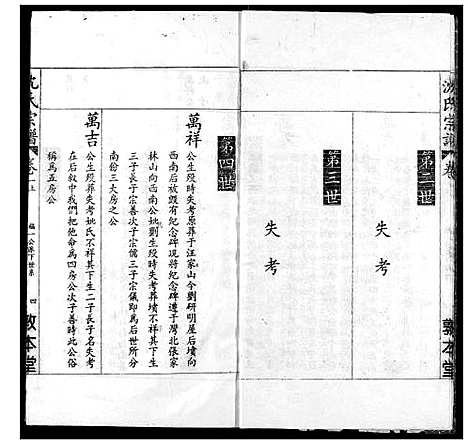 氏宗譜
第二世
失考
第三世
失考
第四世
萬祥
公生歿時失考原葬于汪家山今劉研明屋后墳向
西南后放毀有紀念碑現將紀念碑遷于灣北張家
林山向西南公妣劉生歿時失考葬墳不祥其下生
三子長子宗善次子宗儒三子宗儀即爲后世所分
南份三大房之公
萬吉
公生歿葬失考妣氏不祥其下生二子長子名失考
在后叙中我們把他命爲四房公次子善時此公俗
稱爲五房公
氏宗譜
卷之上
福一公派下世系
四
敦本堂
敦本堂